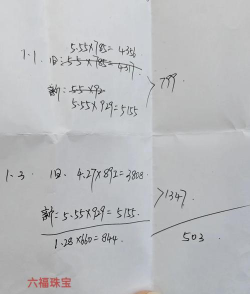 5.55×785=4356
1.1. 旧:5.5×785=4317
新:5.5×92
5.55×929=5155
799
1.3 旧. 4.27×892=3808
1347
新=5.55×929=5155.
1.28×660=844.
503.
六福珠宝